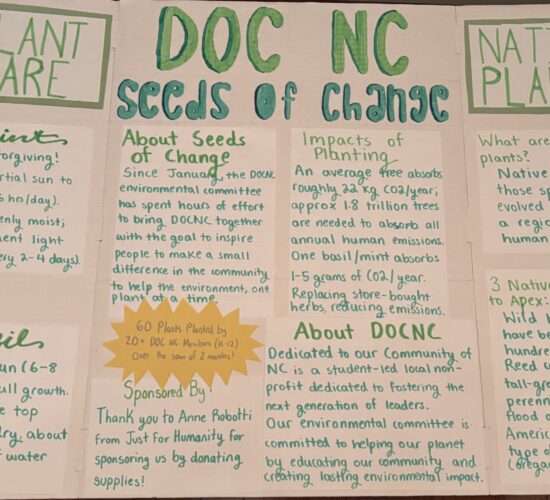 PLANT
CARE
DOC NC
Seeds of Change
NAT
PLA
forgiving!
rtial sun to
hrs/day).
enly moist;
ent light
ery 2-4 days)
About Seeds
of Change
Since January, the DOCNC
environmental committee
has spent hours of effort
to bring DOCNC together
with the goal to inspire
people to make a small
difference in the community
to help the environment, one
plant at a time.
Impacts of
Planting
An average tree absorbs
roughly 22 kg CO2/year;
approx 1.8 trillion trees
are needed to absorb all
annual human emissions.
One basil/mint absorbs
1-5 grams of CO2/year.
Replacing store-bought
herbs, reducing emissions.
What are
plants?
Native
those sp
evolved
a regio
human
60 Plants Planted by
20+ DOC NC Members (K-12)
Over the span of 2 months!
Sponsored By:
Thank you to Anne Robotti
from Just For Humanity for
sponsoring us by donating
supplies!
About DOCNC
Dedicated to our Community of
NC is a student-led local non-
profit dedicated to fostering the
next generation of leaders.
Our environmental committee is
committed to helping our planet
by educating our community and
creating lasting environmental impact.
sun (6-8
ull growth.
e top
dry, about
f water
3 Native
to Apex:
Wild
have be
hundre
Reed
tall-gra
perenn
flood
Americ
type of
(orega